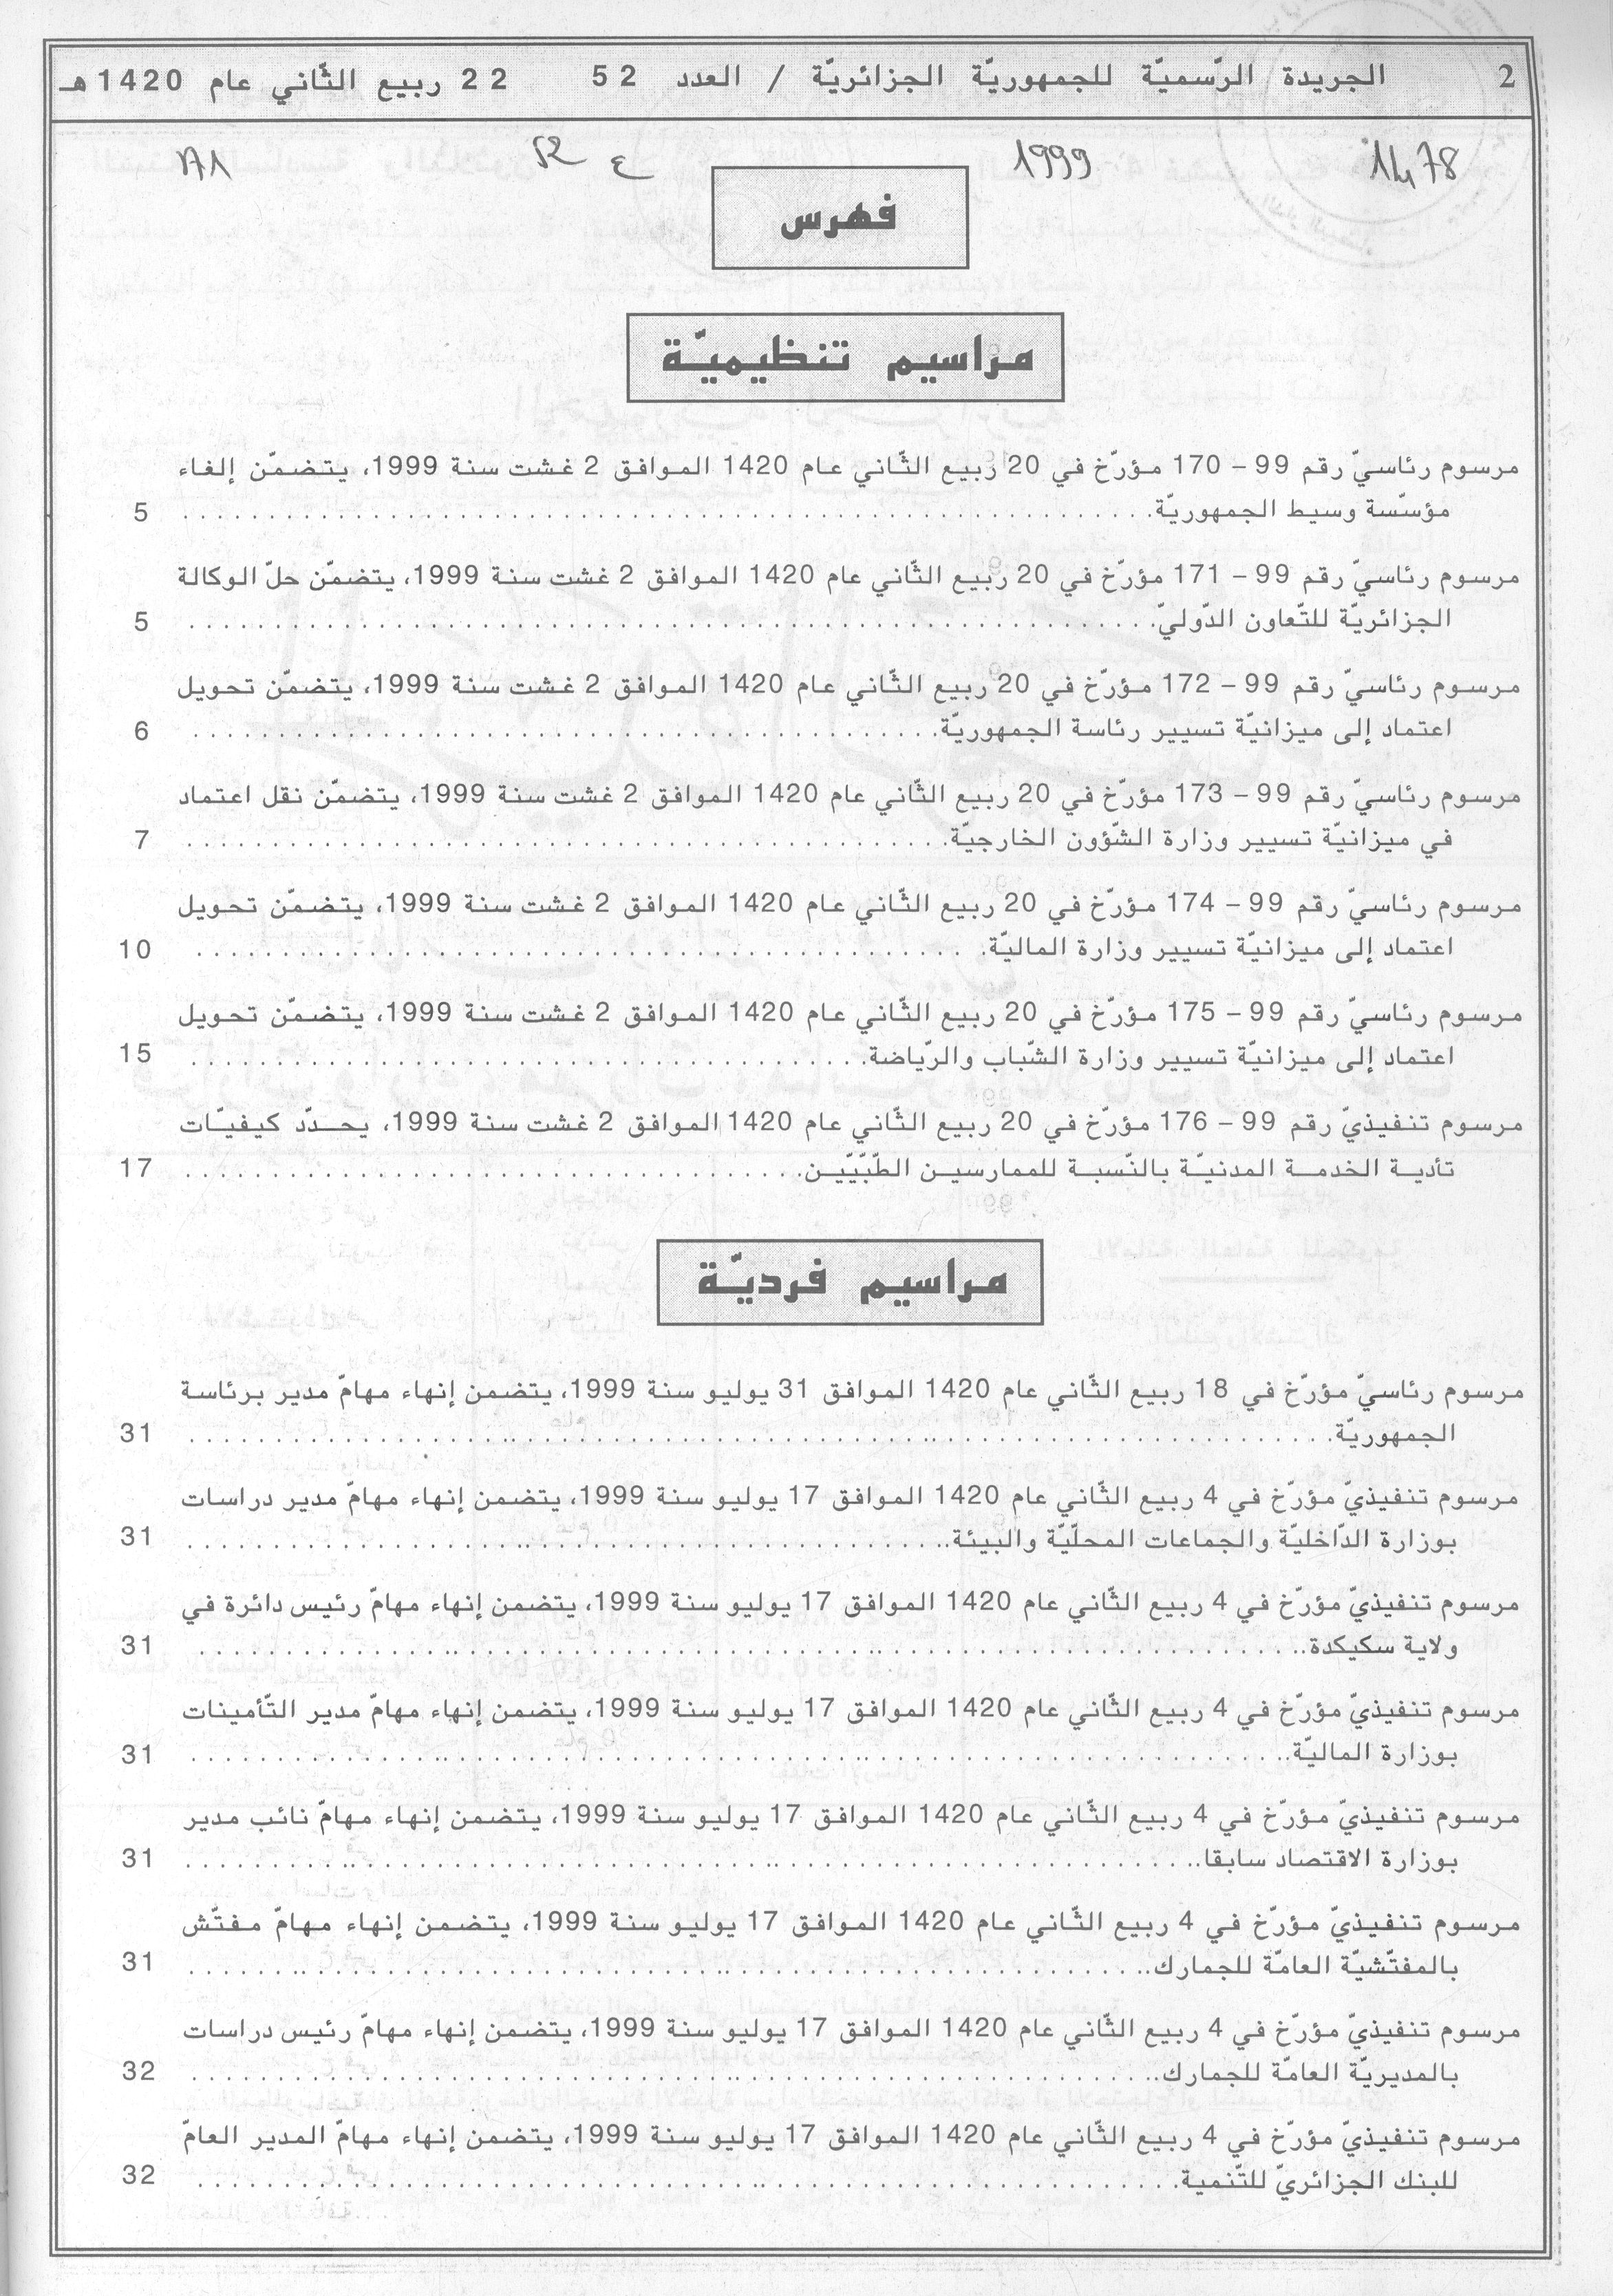 2 الجريدة الرّسميّة للجمهوريّة الجزائريّة / العدد 52 22 ربيع الثّاني عام 1420 هـ
1478 1999 ع 52
فهرس
مراسيم تنظيميّة
مرسوم رئاسيّ رقم 99 – 170 مؤرّخ في 20 ربيع الثّاني عام 1420 الموافق 2 غشت سنة 1999، يتضمّن إلغاء
مؤسّسة وسيط الجمهوريّة. . . . . . . . . . . . . . . . . . . . . . . . . . . . . . 5
مرسوم رئاسيّ رقم 99 – 171 مؤرّخ في 20 ربيع الثّاني عام 1420 الموافق 2 غشت سنة 1999، يتضمّن حلّ الوكالة
الجزائريّة للتّعاون الدّوليّ. . . . . . . . . . . . . . . . . . . . . . . . . . . . . . 5
مرسوم رئاسيّ رقم 99 – 172 مؤرّخ في 20 ربيع الثّاني عام 1420 الموافق 2 غشت سنة 1999، يتضمّن تحويل
اعتماد إلى ميزانيّة تسيير رئاسة الجمهوريّة. . . . . . . . . . . . . . . . . . . . . . . . 6
مرسوم رئاسيّ رقم 99 – 173 مؤرّخ في 20 ربيع الثّاني عام 1420 الموافق 2 غشت سنة 1999، يتضمّن نقل اعتماد
في ميزانيّة تسيير وزارة الشّؤون الخارجيّة. . . . . . . . . . . . . . . . . . . . . . . . 7
مرسوم رئاسيّ رقم 99 – 174 مؤرّخ في 20 ربيع الثّاني عام 1420 الموافق 2 غشت سنة 1999، يتضمّن تحويل
اعتماد إلى ميزانيّة تسيير وزارة الماليّة. . . . . . . . . . . . . . . . . . . . . . . . 10
مرسوم رئاسيّ رقم 99 – 175 مؤرّخ في 20 ربيع الثّاني عام 1420 الموافق 2 غشت سنة 1999، يتضمّن تحويل
اعتماد إلى ميزانيّة تسيير وزارة الشّباب والرّياضة. . . . . . . . . . . . . . . . . . . . . 15
مرسوم تنفيذيّ رقم 99 – 176 مؤرّخ في 20 ربيع الثّاني عام 1420 الموافق 2 غشت سنة 1999، يحدّد كيفيّات
تأدية الخدمة المدنيّة بالنّسبة للممارسين الطّبّيّين. . . . . . . . . . . . . . . . . . . . 17
مراسيم فرديّة
مرسوم رئاسيّ مؤرّخ في 18 ربيع الثّاني عام 1420 الموافق 31 يوليو سنة 1999، يتضمن إنهاء مهامّ مدير برئاسة
الجمهوريّة. . . . . . . . . . . . . . . . . . . . . . . . . . . . . . 31
مرسوم تنفيذيّ مؤرّخ في 4 ربيع الثّاني عام 1420 الموافق 17 يوليو سنة 1999، يتضمن إنهاء مهامّ مدير دراسات
بوزارة الدّاخليّة والجماعات المحلّيّة والبيئة. . . . . . . . . . . . . . . . . . . . . . . . 31
مرسوم تنفيذيّ مؤرّخ في 4 ربيع الثّاني عام 1420 الموافق 17 يوليو سنة 1999، يتضمن إنهاء مهامّ رئيس دائرة في
ولاية سكيكدة. . . . . . . . . . . . . . . . . . . . . . . . . . . . . . 31
مرسوم تنفيذيّ مؤرّخ في 4 ربيع الثّاني عام 1420 الموافق 17 يوليو سنة 1999، يتضمن إنهاء مهامّ مدير التّأمينات
بوزارة الماليّة. . . . . . . . . . . . . . . . . . . . . . . . . . . . . . 31
مرسوم تنفيذيّ مؤرّخ في 4 ربيع الثّاني عام 1420 الموافق 17 يوليو سنة 1999، يتضمن إنهاء مهامّ نائب مدير
بوزارة الاقتصاد سابقا. . . . . . . . . . . . . . . . . . . . . . . . . . . . . . 31
مرسوم تنفيذيّ مؤرّخ في 4 ربيع الثّاني عام 1420 الموافق 17 يوليو سنة 1999، يتضمن إنهاء مهامّ مفتّش
بالمفتّشيّة العامّة للجمارك. . . . . . . . . . . . . . . . . . . . . . . . . . . . . . 31
مرسوم تنفيذيّ مؤرّخ في 4 ربيع الثّاني عام 1420 الموافق 17 يوليو سنة 1999، يتضمن إنهاء مهامّ رئيس دراسات
بالمديريّة العامّة للجمارك. . . . . . . . . . . . . . . . . . . . . . . . . . . . . . 32
مرسوم تنفيذيّ مؤرّخ في 4 ربيع الثّاني عام 1420 الموافق 17 يوليو سنة 1999، يتضمن إنهاء مهامّ المدير العامّ
للبنك الجزائريّ للتّنمية. . . . . . . . . . . . . . . . . . . . . . . . . . . . . . 32